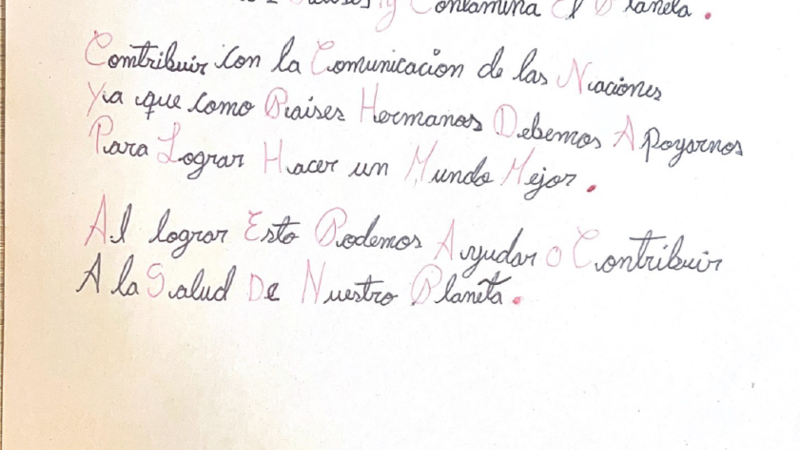 y Contamina El Planeta.
Contribuir con la Comunicación de las Naciones
Ya que como Paises Hermanos Debemos Apoyarnos
Para Lograr Hacer un Mundo Mejor.
Al lograr Esto Podemos Ayudar o Contribuir
A la Salud De Nuestro Planeta.